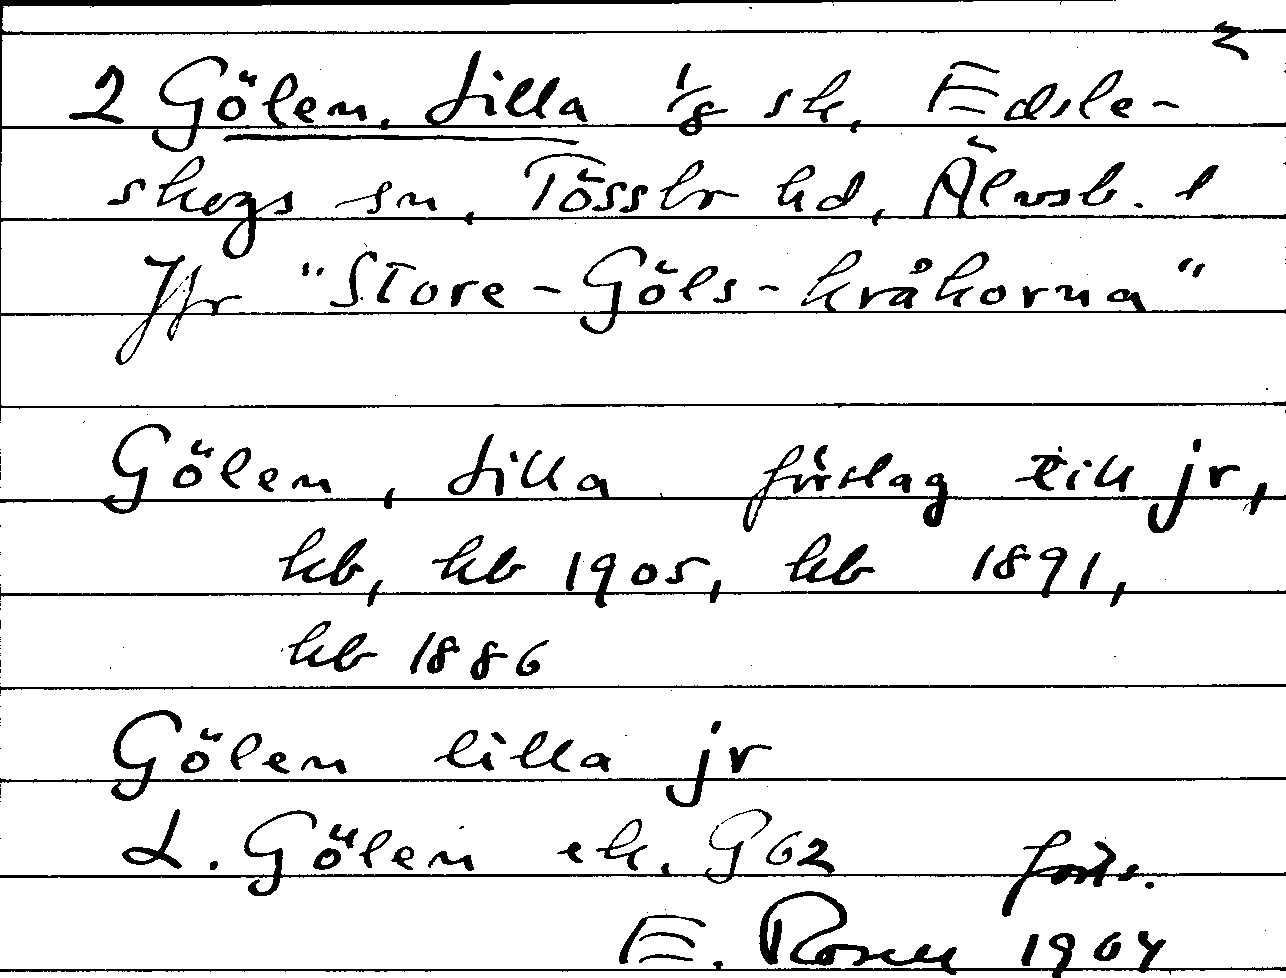 2
2 Gölen, Lilla 1/8 sk, Edsle-
skogs sn, Tössbo hd, Älvsb. l
Jfr "Store-Göls-kråkorna"
Gölen, Lilla förslag till jr,
kb, kb 1905, kb 1891,
kb 1886
Gölen lilla jr
L. Gölen ek. G62 forts.
E. Rosell 1964